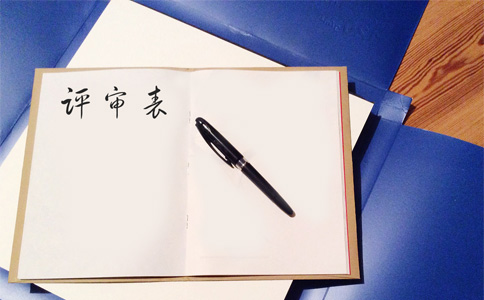 评审表